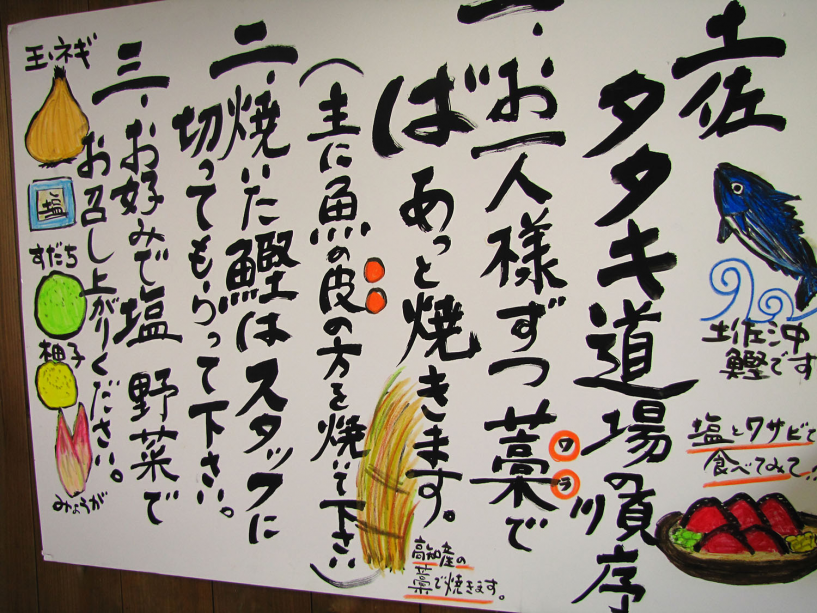 土佐
タタキ道場の順序
土佐沖
鰹です
塩とワサビで
食べてみて!!
一、お一人様ずつ藁で
ワラ
ばあっと焼きます。
高知産の
藁で焼きます。
(主に魚の皮の方を焼いて下さい)
二、焼いた鰹はスタッフに
切ってもらって下さい。
三、お好みで塩 野菜で
お召し上がりください。
玉ネギ
塩
すだち
柚子
みょうが